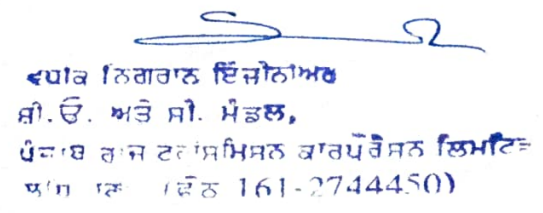 ਵਧੀਕ ਨਿਗਰਾਨ ਇੰਜੀਨੀਅਰ
ਸ਼ੀ.ਓ. ਅਤੇ ਸੀ. ਮੰਡਲ,
ਪੰਜਾਬ ਰਾਜ ਟਰਾਂਸਮਿਸ਼ਨ ਕਾਰਪੋਰੈਸਨ ਲਿਮਟਿਡ
(ਫੋਨ 161-2744450)